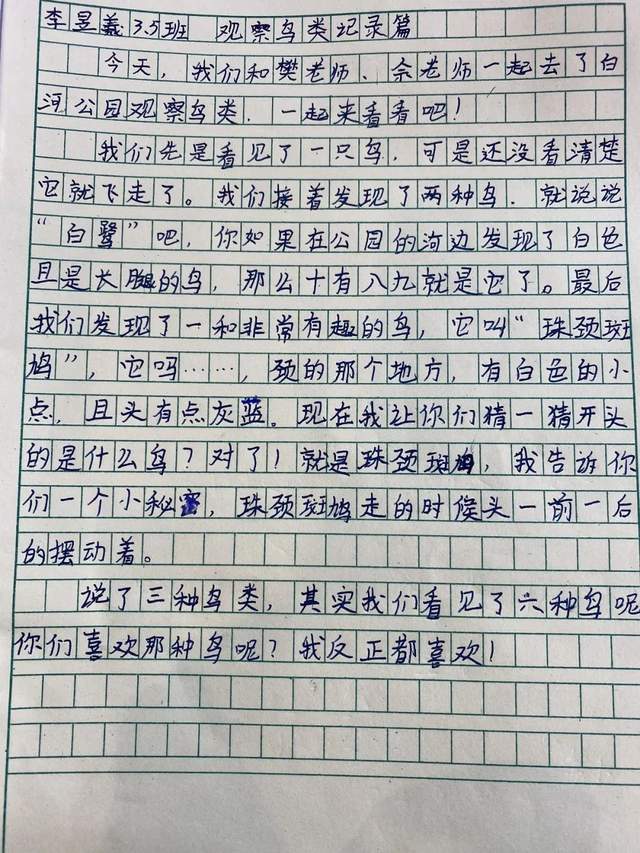 李昱羲3.5班 观察鸟类记录篇
今天,我们和樊老师、余老师一起去了白
河公园观察鸟类.一起来看看吧!
我们先是看见了一只鸟,可是还没看清楚
它就飞走了。我们接着发现了两种鸟.就说说
“白鹭”吧,你如果在公园的河边发现了白色
且是长腿的鸟,那么十有八九就是它了。最后
我们发现了一和非常有趣的鸟,它叫“珠颈斑
鸠”,它吗……,颈的那个地方,有白色的小
点,且头有点灰蓝。现在我让你们猜一猜开头
的是什么鸟?对了!就是珠颈斑鸠,我告诉你
们一个小秘密,珠颈斑鸠走的时候头一前一后
的摆动着。
说了三种鸟类,其实我们看见了六种鸟呢
你们喜欢那种鸟呢?我反正都喜欢!